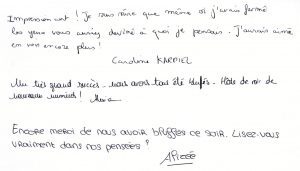 Impressionnant ! Je suis sûre que même si j'avais fermé
les yeux vous auriez deviné à quoi je pensais. J'aurais aimé
en voir encore plus !
Caroline
Un très grand succès. Nous avons tous été bluffés. Hâte de voir de
nouveaux numéros !
Encore merci de nous avoir bluffés ce soir. Lisez-vous
vraiment dans nos pensées ?